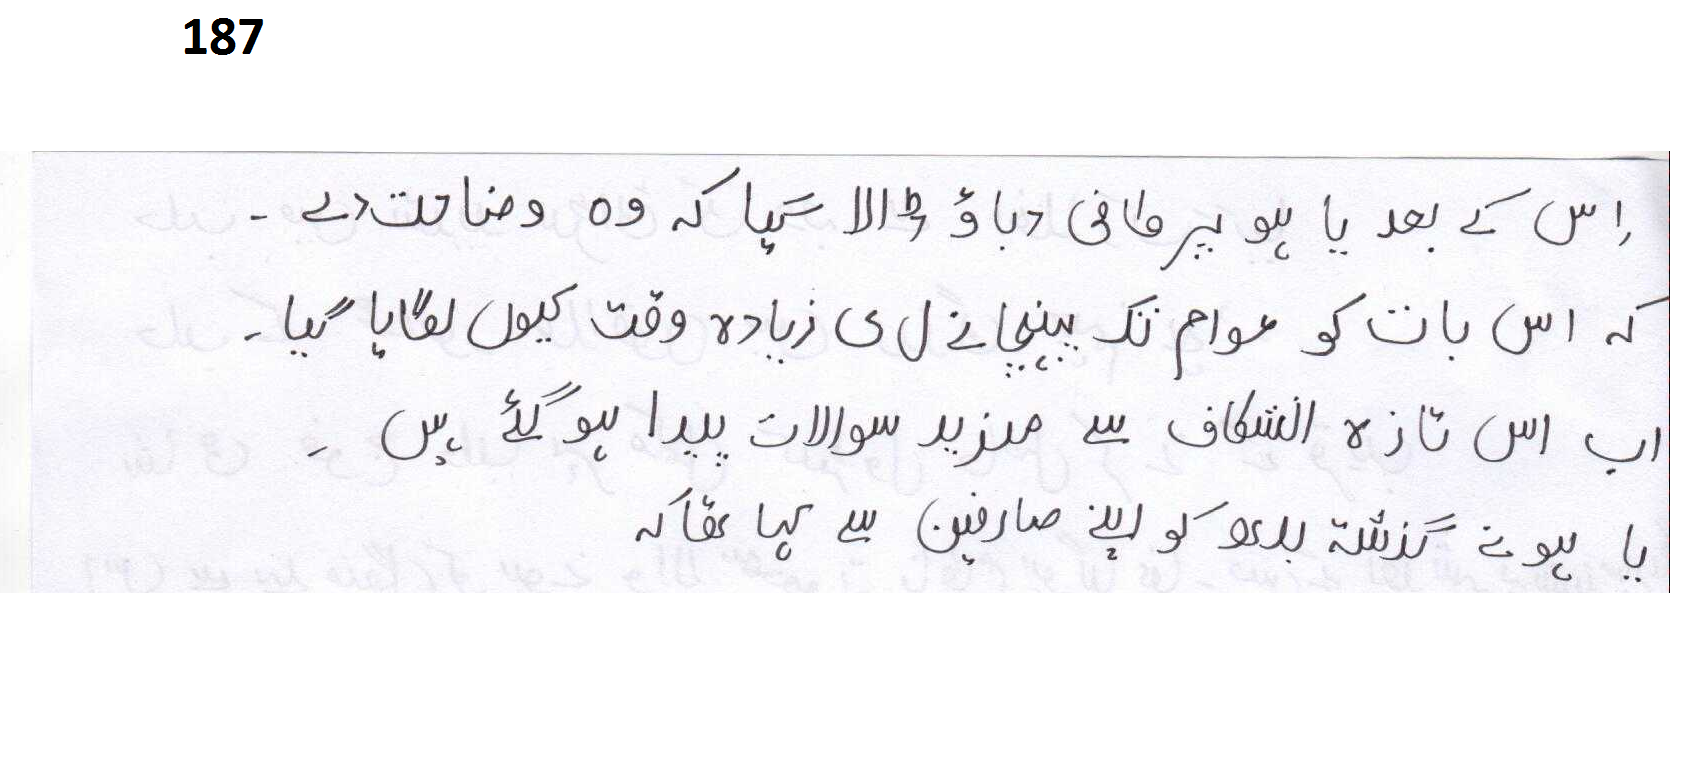 187
اس کے بعد یا ہو پر کافی دباؤ ڈالا گیا کہ وہ وضاحت دے ۔
کہ اس بات کو عوام تک پہنچانے ل ی زیادہ وقت کیوں لگایا گیا ۔
اب اس تازہ انشکاف سے مزید سوالات پیدا ہو گئے ہیں ۔
یا ہو نے گذشتہ بدھ کو اپنے صارفین سے کہا تھا کہ